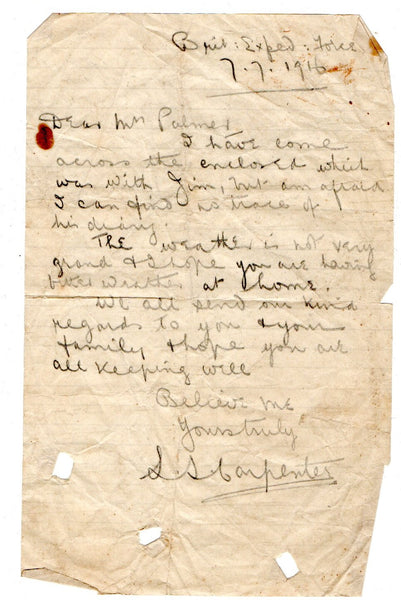 Brit: Exped: Force
7.7.1916
Dear Mrs Palmer,
I have come
across the enclosed which
was with Jim, but am afraid
I can find no trace of
his diary.
The weather is not very
grand & I hope you are having
better weather at home.
We all send our kind
regards to you & your
family & hope you are
all keeping well
Believe me
Yours truly
S. S. Carpenter